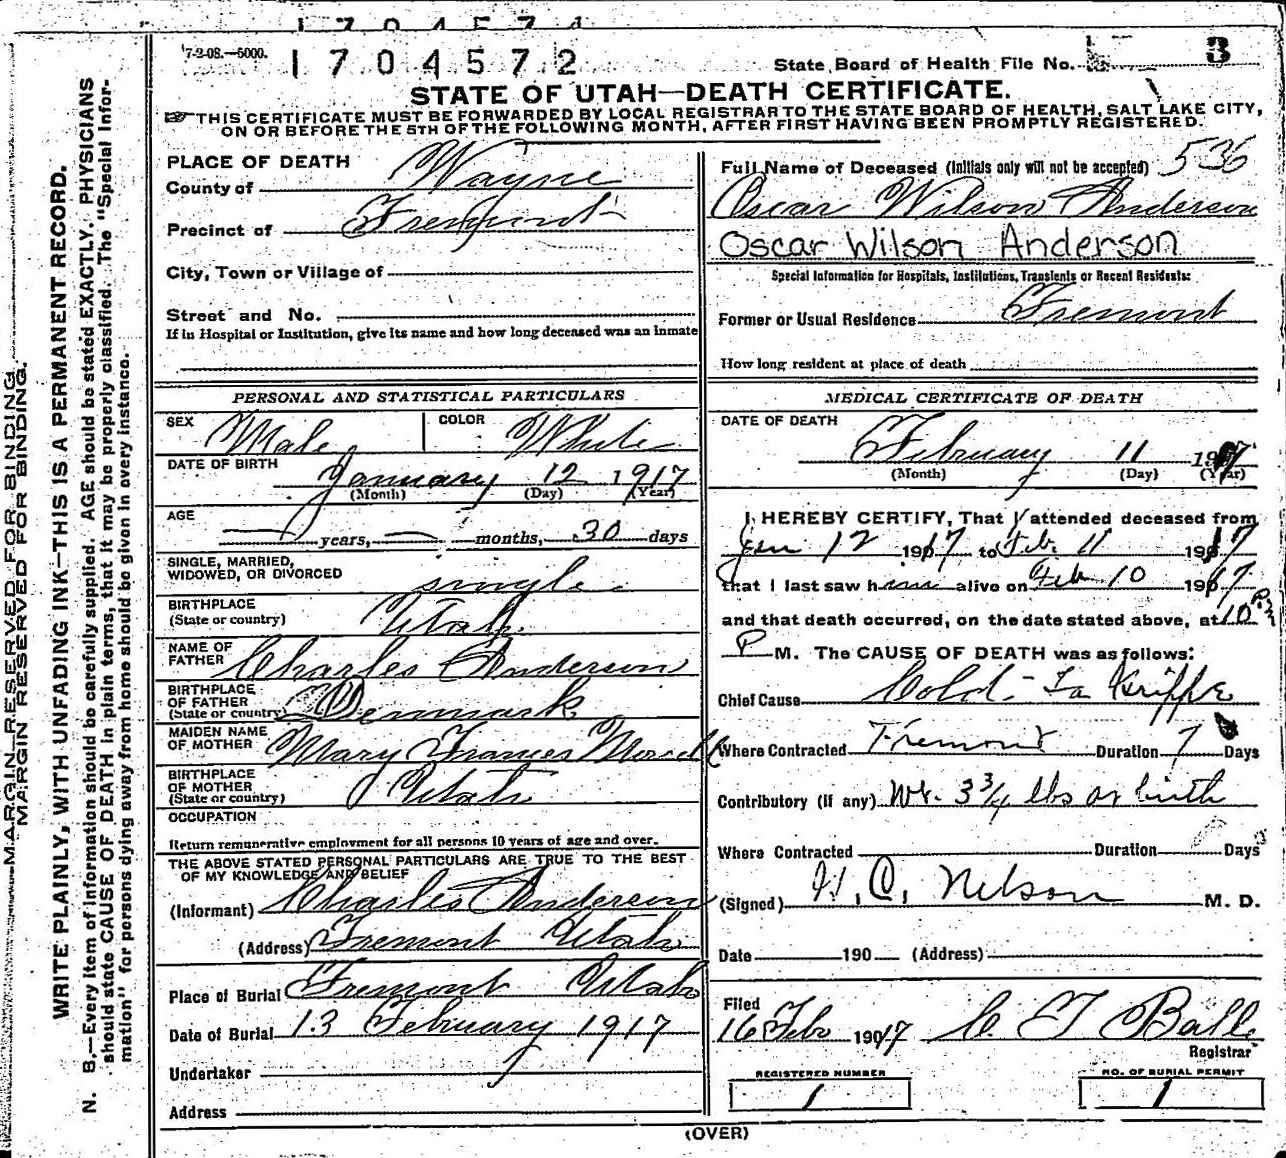 1704574
7-2-08.—5000.
1704572
State Board of Health File No. 3
STATE OF UTAH—DEATH CERTIFICATE.
THIS CERTIFICATE MUST BE FORWARDED BY LOCAL REGISTRAR TO THE STATE BOARD OF HEALTH, SALT LAKE CITY,
ON OR BEFORE THE 5TH OF THE FOLLOWING MONTH, AFTER FIRST HAVING BEEN PROMPTLY REGISTERED.
MARGIN RESERVED FOR BINDING
MARGIN RESERVED FOR BINDING.
WRITE PLAINLY, WITH UNFADING INK—THIS IS A PERMANENT RECORD.
N. B.—Every item of information should be carefully supplied. AGE should be stated EXACTLY. PHYSICIANS
should state CAUSE OF DEATH in plain terms, that it may be properly classified. The "Special Infor-
mation" for persons dying away from home should be given in every instance.
PLACE OF DEATH
County of Wayne
Precinct of Fremont
City, Town or Village of
Street and No.
If in Hospital or Institution, give its name and how long deceased was an inmate
PERSONAL AND STATISTICAL PARTICULARS
SEX Male COLOR White
DATE OF BIRTH January 12 1917
(Month) (Day) (Year)
AGE
— years, — months, 30 days
SINGLE, MARRIED,
WIDOWED, OR DIVORCED single
BIRTHPLACE
(State or country) Utah
NAME OF
FATHER Charles Anderson
BIRTHPLACE
OF FATHER
(State or country) Denmark
MAIDEN NAME
OF MOTHER Mary Frances Morrell
BIRTHPLACE
OF MOTHER
(State or country) Utah
OCCUPATION
Return remunerative employment for all persons 10 years of age and over.
THE ABOVE STATED PERSONAL PARTICULARS ARE TRUE TO THE BEST
OF MY KNOWLEDGE AND BELIEF
(Informant) Charles Anderson
(Address) Fremont Utah
Place of Burial Fremont Utah
Date of Burial 13 February 1917
Undertaker
Address
Full Name of Deceased (Initials only will not be accepted) 536
Oscar Wilson Anderson
Oscar Wilson Anderson
Special Information for Hospitals, Institutions, Transients or Recent Residents:
Former or Usual Residence Fremont
How long resident at place of death
MEDICAL CERTIFICATE OF DEATH
DATE OF DEATH
February 11 1917
(Month) (Day) (Year)
I HEREBY CERTIFY, That I attended deceased from
Jan 12 1917 to Feb. 11 1917
that I last saw him alive on Feb 10 1917
and that death occurred, on the date stated above, at 10 P.M
P M. The CAUSE OF DEATH was as follows:
Chief Cause Cold - La Grippe
Where Contracted Fremont Duration 7 Days
Contributory (if any) Wt. 3 3/4 lbs at birth
Where Contracted Duration Days
(Signed) H. C. Nelson M. D.
Date 190 (Address)
Filed
16 Feb 1917 C. T. Balle
Registrar
REGISTERED NUMBER
1
NO. OF BURIAL PERMIT
1
(OVER)